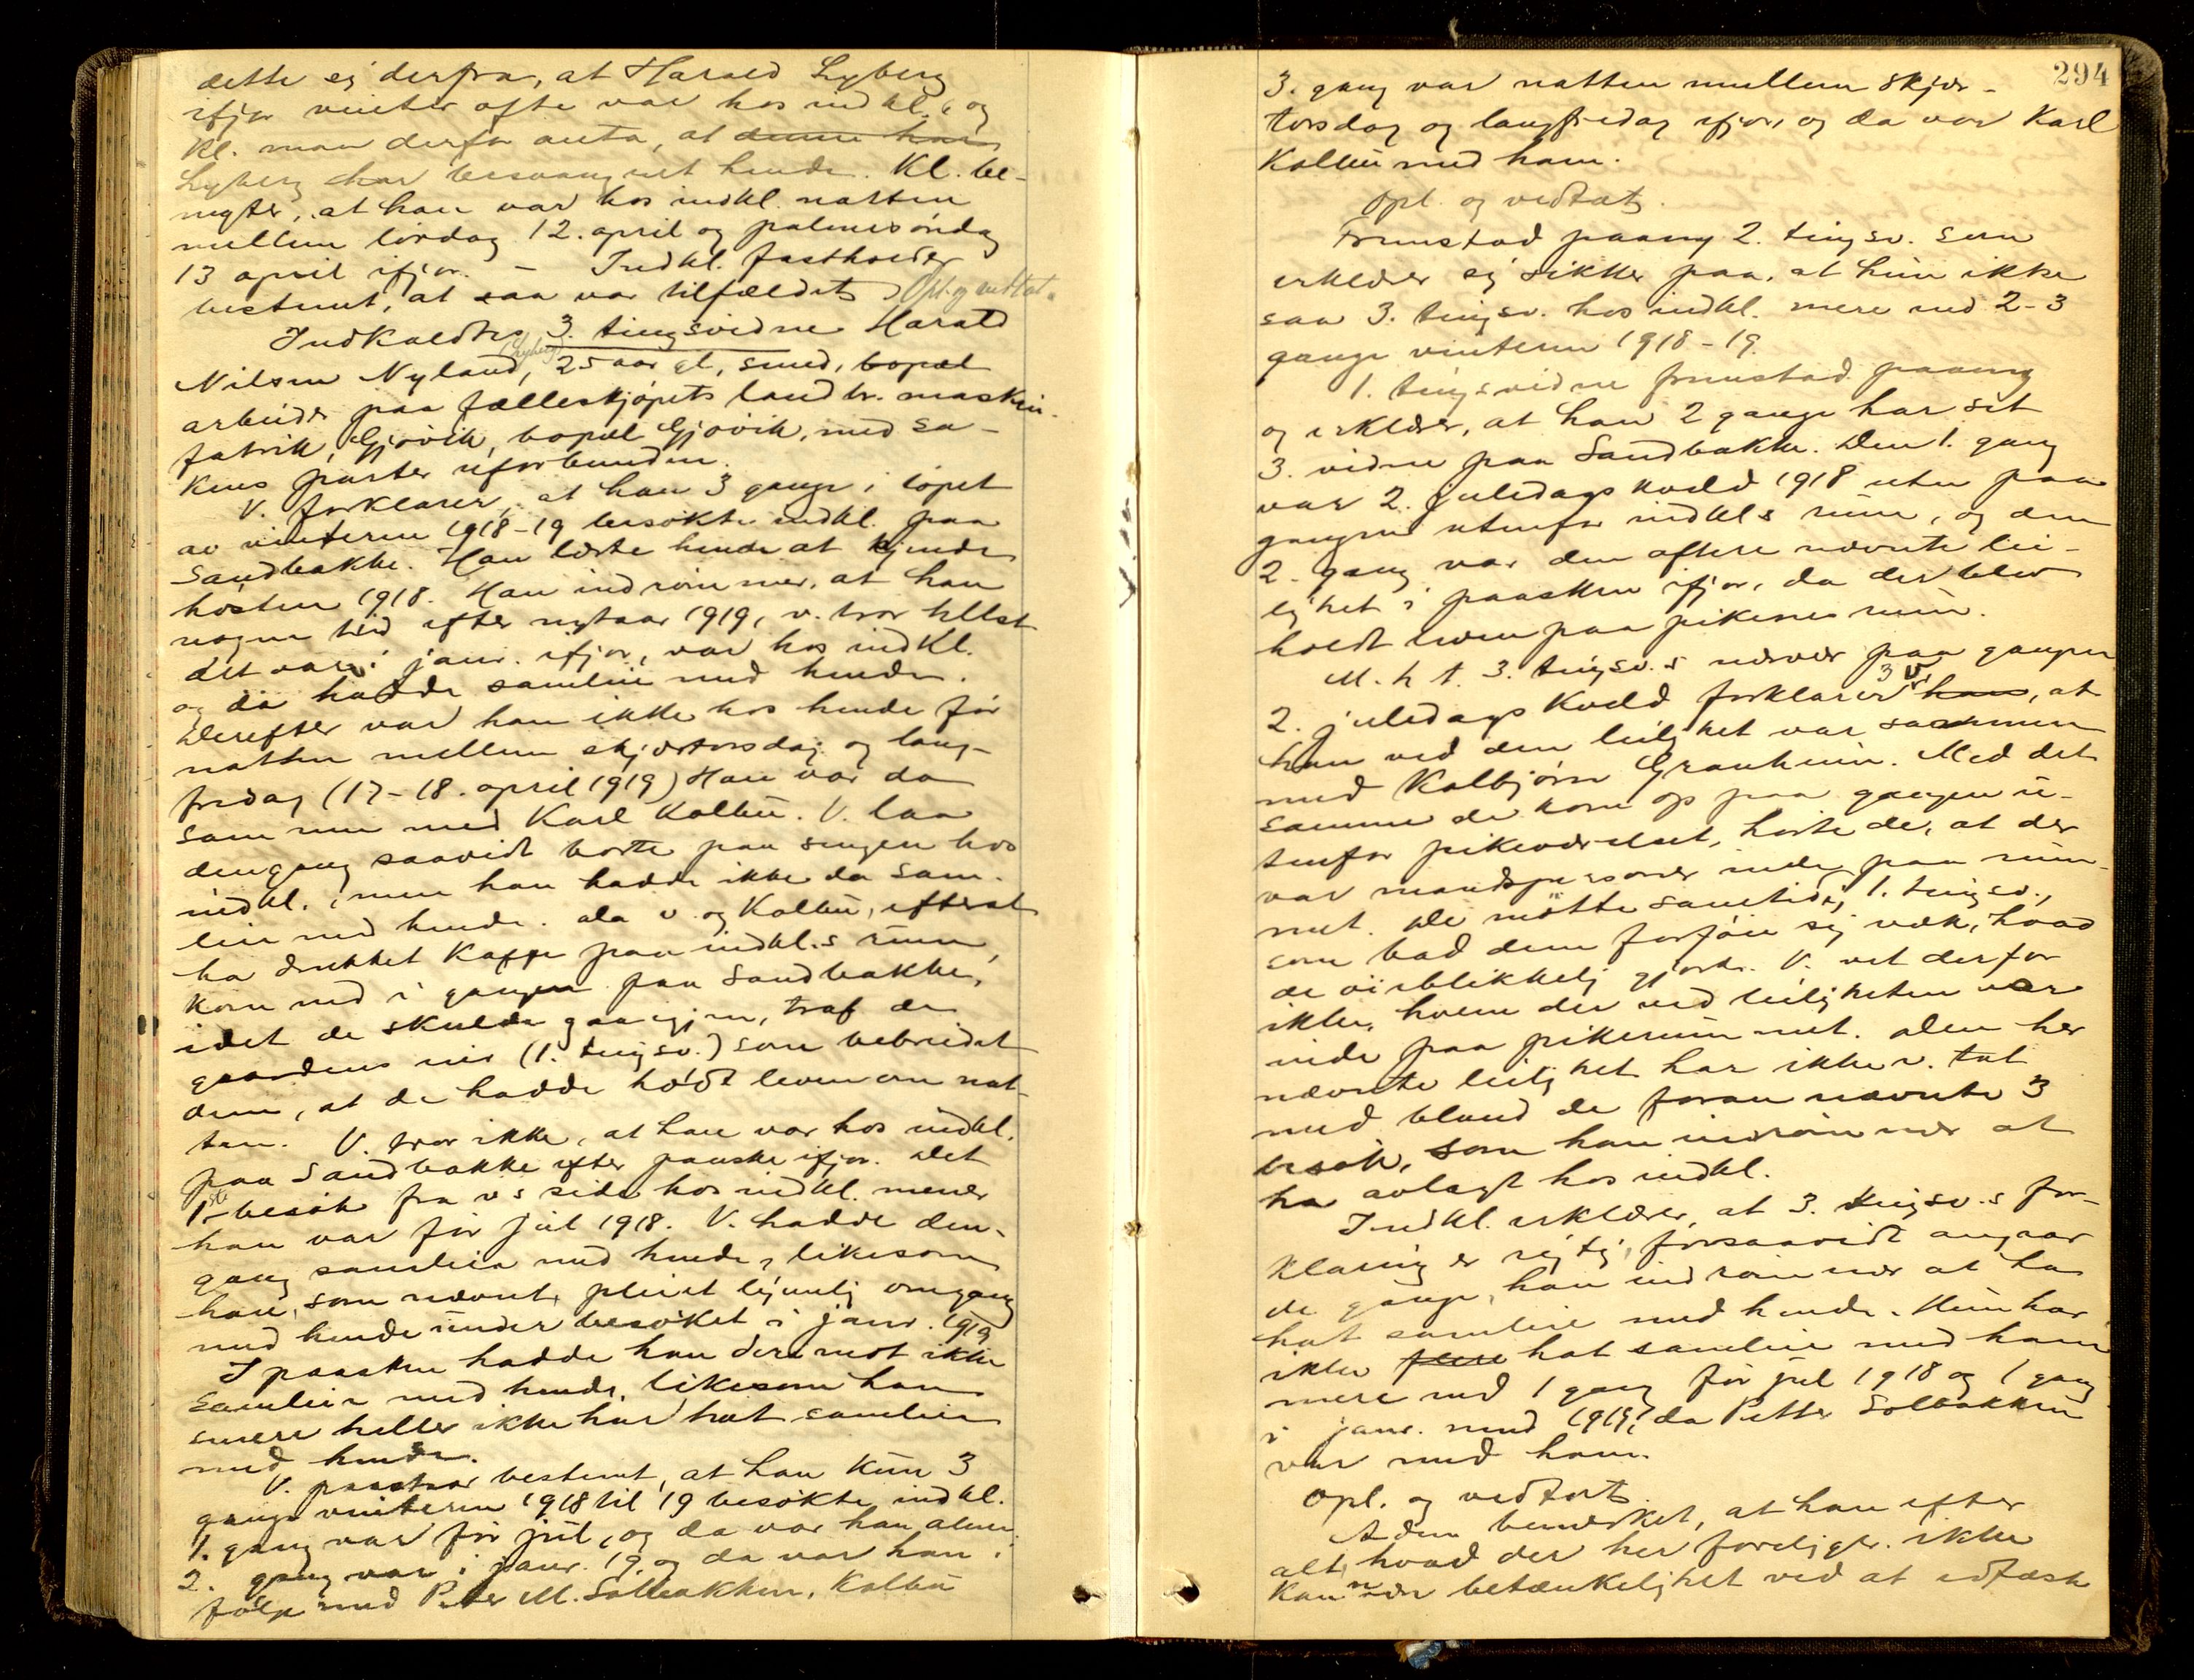 dette ej derfra, at Harald Lyberg
ifjor vinter ofte var hos indkl., og
Kl. maa derfor anta, at denne har
Lyberg har besvangret hende. Kl. be-
negter, at han var hos indkl. natten
mellem lördag 12. april og palmesöndag
13 april ifjor. - Indkl. fastholder
bestemt, at saa var tilfældet. Opl. og vedtat.
Indkaldtes 3. tingsvidne Harald
(Lyberg)
Nilsen Nyland, 25 aar gl, smed, bopæl
arbeider paa fælleskjöpets landbr. maskin-
fabrik, Gjövik, bopæl Gjövik, med sa-
kens parter uforbunden.
V. forklarer, at han 3 gange i löpet
av vinteren 1918-19 besökte indkl. paa
Sandbakke. Han lærte hende at kjende
hösten 1918. Han indrömmer, at han
nogen tid efter nytaar 1919, v. tror helst
det var i janr. ifjor, var hos indkl.
og da hadde samleie med hende.
Derefter var han ikke hos hende för
natten mellem skjærtorsdag og lang-
fredag (17-18. april 1919) Han var da
sammen med Karl Kolbu. V. laa
dengang saavidt borte paa sengen hos
indkl., men han hadde ikke da sam-
leie med hende. Da v. og Kolbu, efterat
ha drukket kaffe paa indkl.s rum,
kom ned i gangen paa Sandbakke,
idet de skulde gaa igjen, traf de
gaardens eier (1. tingsv.) som bebreidet
dem, at de hadde holdt leven om nat-
ten. V. tror ikke, at han var hos indkl.
paa Sandbakke efter paaske ifjor. Det
1ste besök fra v.s side hos indkl. mener
han var för jul 1918. V. hadde den-
gang samleie med hende, likesom
han, som nævnt, pleiet legemlig omgang
med hende under besöket i janr. 1919
I paasken hadde han derimot ikke
samleie med hende, likesom han
senere heller ikke har hat samleie
med hende.
V. paastaar bestemt, at han kun 3
gange vinteren 1918 til 19 besökte indkl.
1. gang var för jul, og da var han alene.
2. gang var i janr. 19 og da var han i
fölge med Peter M. Solbakken, Kolbu
294
3. gang var natten mellem skjær-
torsdag og langfredag ifjor, og da var Karl
Kolbu med ham.
Opl. og vedtat.
Fremstod paany 2. tingsv. som
erklærer sig sikker paa, at hun ikke
saa 3. tingsv. hos indkl. mere end 2-3
gange vinteren 1918-19.
1. tingsvidne fremstod paany
og erklærer, at han 2 gange har set
3. vidne paa Sandbakke. Den 1. gang
var 2. juledags kveld 1918 ute paa
gangen utenfor indkl.s rum, og den
2. gang var den oftere nævnte lei-
lighet i paasken ifjor, da der blev
holdt leven paa pikenes rum.
M. h. t. 3. tingsv.s nærvær paa gangen
3 v.
2. juledags kveld forklarer han, at
han ved den leilighet var sammen
med Kolbjörn Granheim. Med det
samme de kom op paa gangen u-
tenfor pikeværelset, hörte de, at der
var mandspersoner inde paa rum-
met. De mötte samtidig 1. tingsv.,
som bad dem forföie sig væk, hvad
de öieblikkelig gjorde. V. vet derfor
ikke, hvem der ved leiligheten var
inde paa pikerummet. Den her
nævnte leilighet har ikke v. tat
med bland de foran nævnte 3
besök, som han indrömmer at
ha avlagt hos indkl.
Indkl. erklærer, at 3. tingsv.s for-
klaring er rigtig, forsaavidt angaar
de gange, han indrömmer at ha
hat samleie med hende. Hun har
ikke flere hat samleie med ham
mere end 1 gang för jul 1918 og 1 gang
i janr. mnd 1919, da Petter Solbakken
var med ham.
Opl. og vedtat.
Adm. bemerket, at han efter
alt, hvad der her foreligger ikke
kan nære betænkelighet ved at edfæste